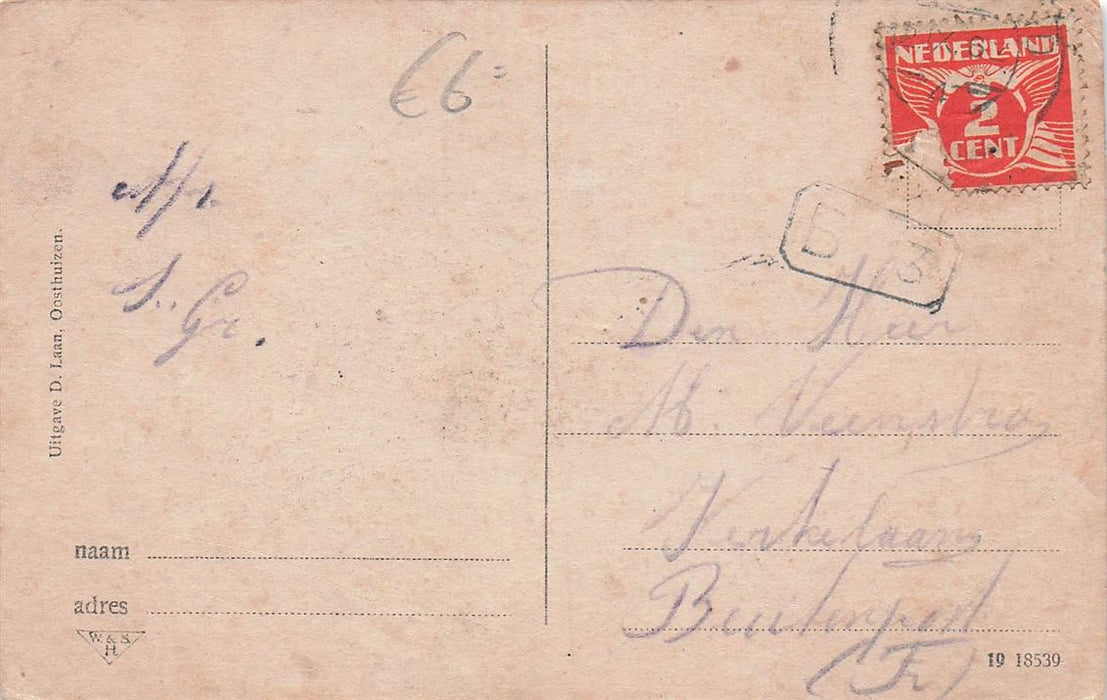 €6=
NEDERLAND
2
CENT
Uitgave D. Laan, Oosthuizen.
S. Gr.
B 3
Den Heer
M. Veenstra
Kerkelaan
Buitenpost
(Fr)
naam
adres
W. & S.
H.
19 18539